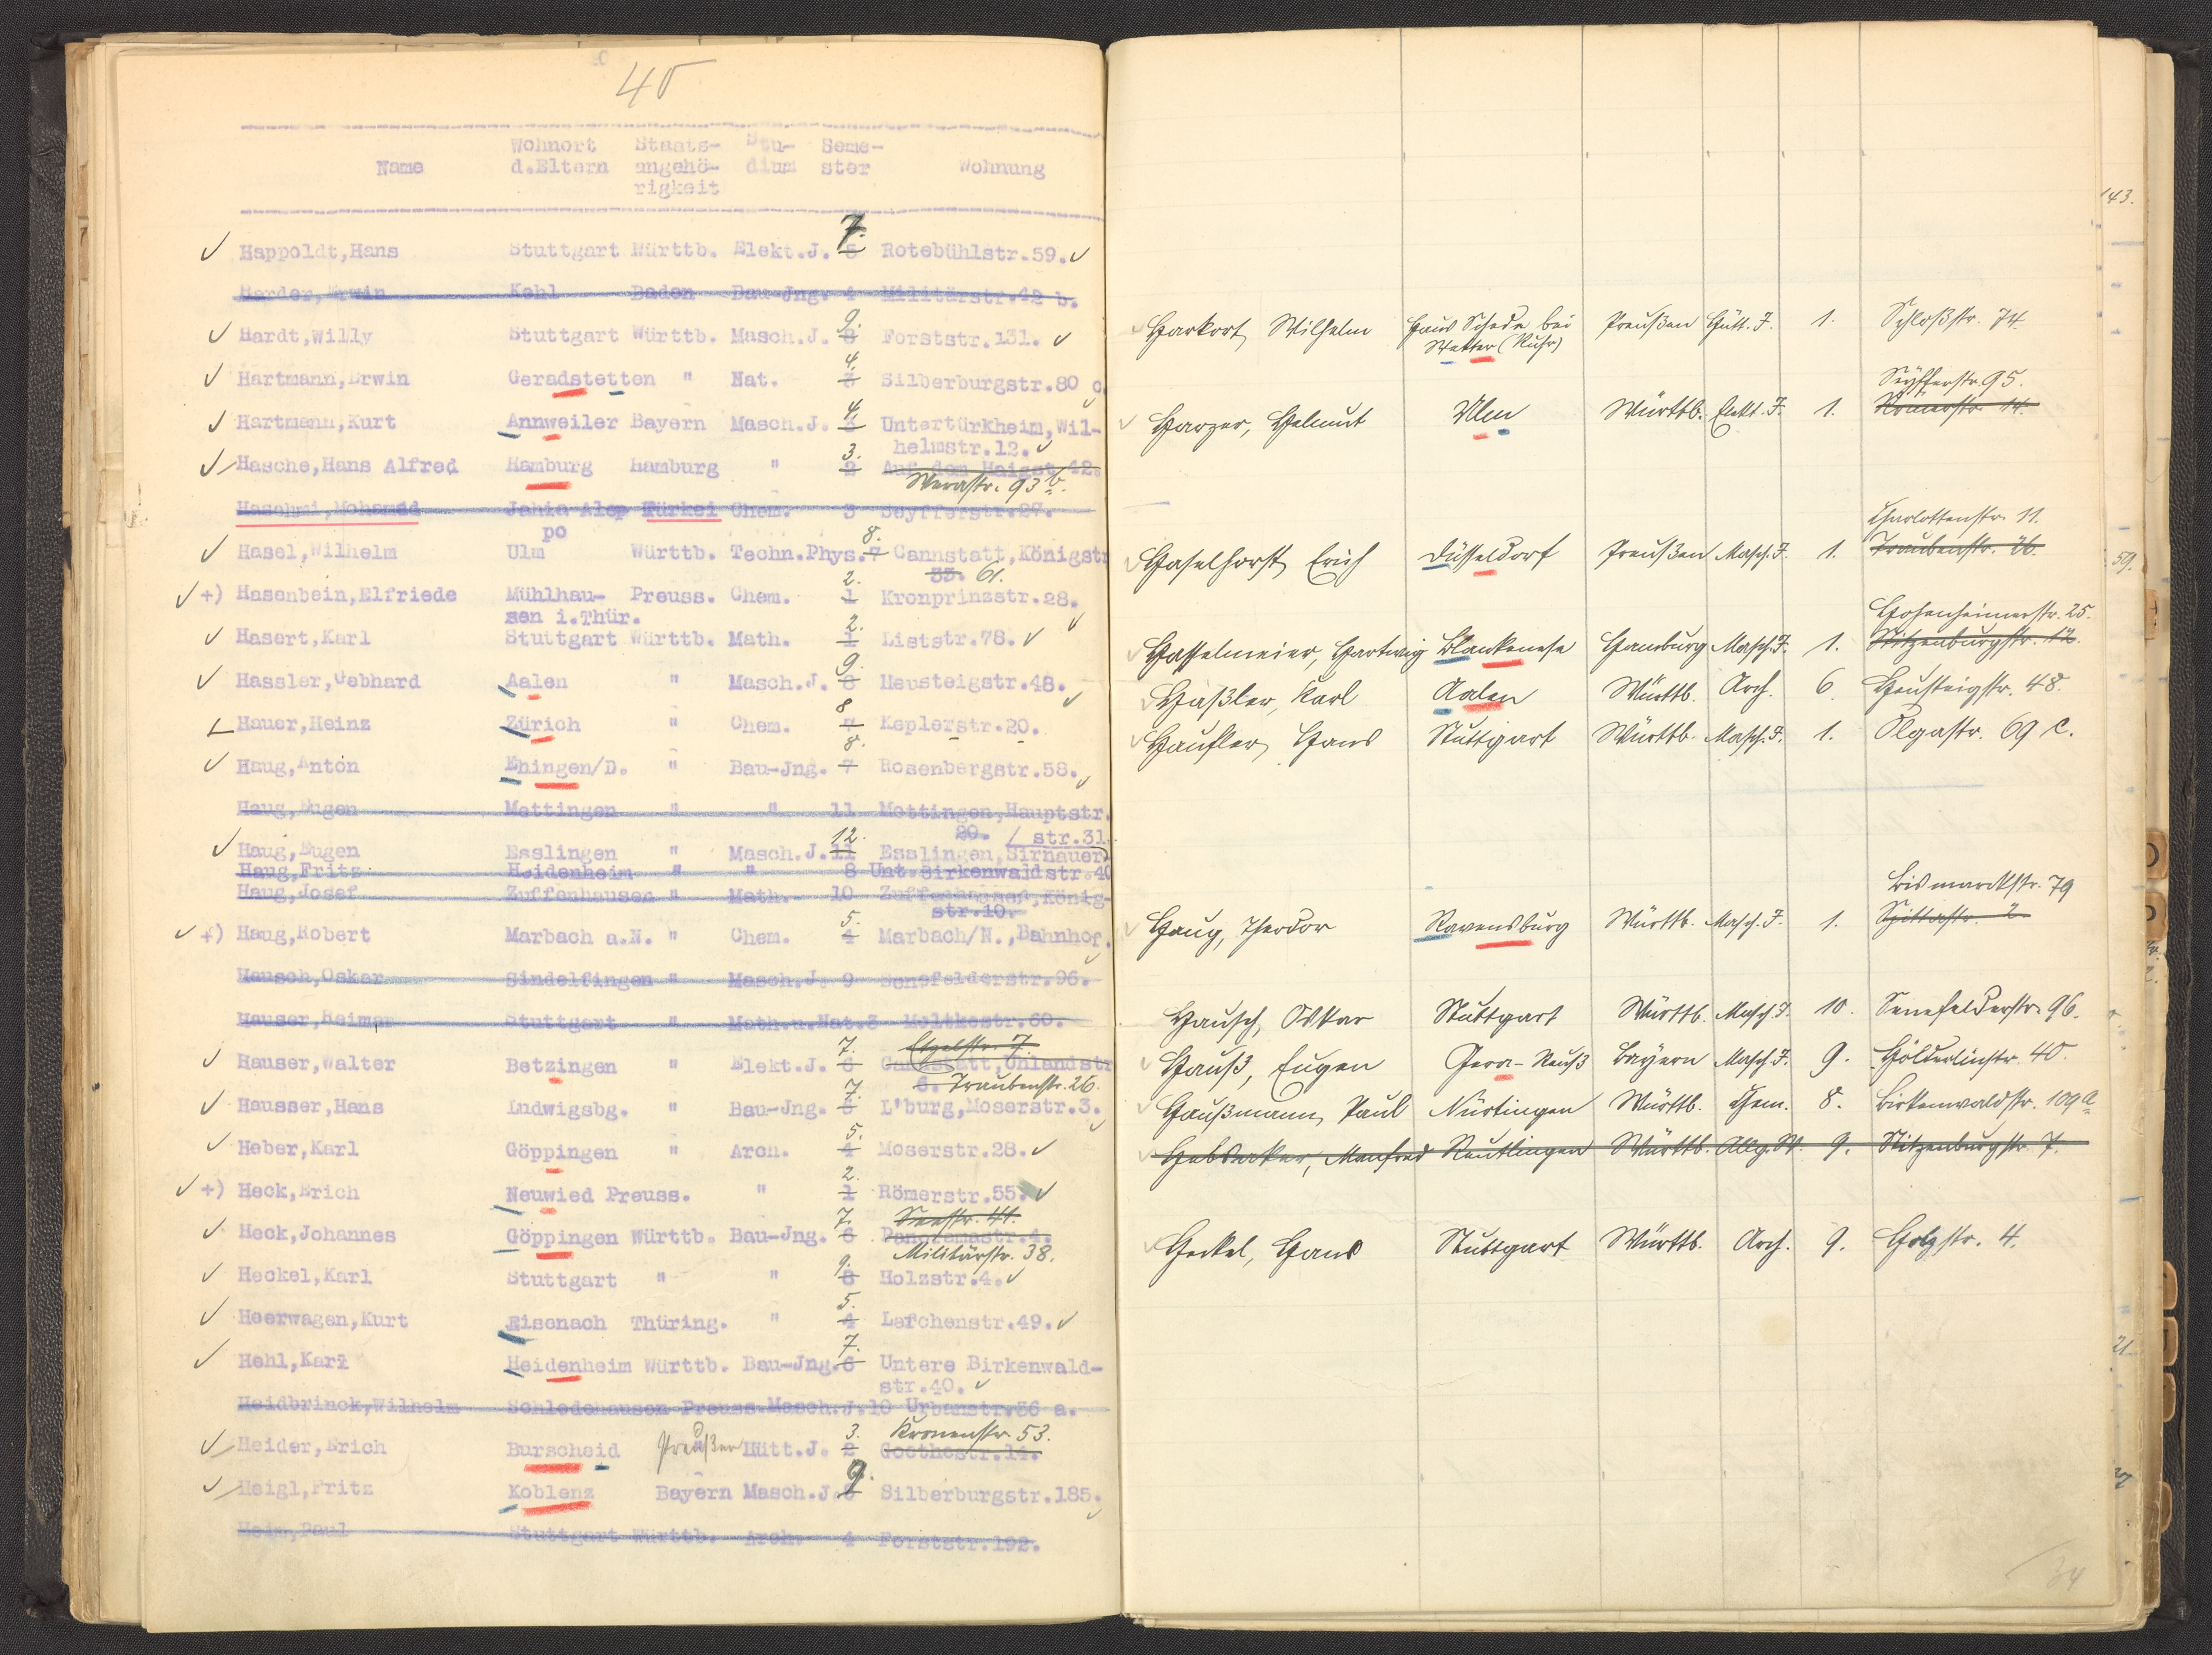 40
45
Wohnort Staats- Stu- Seme-
Name d.Eltern angehö- dium ster Wohnung
rigkeit
7.
Happoldt,Hans Stuttgart Württb. Elekt.J. Rotebühlstr.59.
Harder,Erwin Kehl Baden Bau-Jng. 4 Militärstr.42 b.
9.
Hardt,Willy Stuttgart Württb. Masch.J. 8 Forststr.131.
4.
Hartmann,Erwin Geradstetten " Nat. 3 Silberburgstr.80 c.
4.
Hartmann,Kurt Annweiler Bayern Masch.J. 3 Untertürkheim,Wil-
helmstr.12.
3.
Hasche,Hans Alfred Hamburg Hamburg " 2 Auf dem Haigst 42.
Werastr. 93 b.
Haschmi,Mohamed Jahia Alep Türkei Chem. 3 Seyfferstr.27.
po
8.
Hasel,Wilhelm Ulm Württb. Techn.Phys. 7 Cannstatt,Königstr
33. 61.
2.
+) Hasenbein,Elfriede Mühlhau- Preuss. Chem. 1 Kronprinzstr.28.
sen i.Thür.
2.
Hasert,Karl Stuttgart Württb. Math. 1 Liststr.78.
9.
Hassler,Gebhard Aalen " Masch.J. 8 Heusteigstr.48.
8
Hauer,Heinz Zürich " Chem. 7 Keplerstr.20.
8.
Haug,Anton Ehingen/D. " Bau-Jng. 7 Rosenbergstr.58.
Haug,Eugen Mettingen " " 11 Mettingen,Hauptstr.
20. / str.31.
12.
Haug,Eugen Esslingen " Masch.J. 11 Esslingen,Sirnauer
Haug,Fritz Heidenheim " " 8 Unt.Birkenwaldstr.40
Haug,Josef Zuffenhausen " Math. 10 Zuffenhausen,König-
str.10.
5.
+) Haug,Robert Marbach a.N. " Chem. 4 Marbach/N.,Bahnhof.
Hausch,Oskar Sindelfingen " Masch.J. 9 Senefelderstr.96.
Hauser,Reimar Stuttgart " Math.u.Nat.3 Moltkestr.60.
7. Etzelstr. 7.
Hauser,Walter Betzingen " Elekt.J. 6 Cannstatt,Uhlandstr
6. Traubenstr. 26.
7.
Hausser,Hans Ludwigsbg. " Bau-Jng. 6 L'burg,Moserstr.3.
5.
Heber,Karl Göppingen " Arch. 4 Moserstr.28.
2.
+) Heck,Erich Neuwied Preuss. " 1 Römerstr.55.
7. Seestr. 41.
Heck,Johannes Göppingen Württb. Bau-Jng. 6 Panoramastr.4.
Militärstr. 38.
9.
Heckel,Karl Stuttgart " " 8 Holzstr.4.
5.
Heerwagen,Kurt Eisenach Thüring. " 4 Lerchenstr.49.
7.
Hehl,Karl Heidenheim Württb. Bau-Jng. 6 Untere Birkenwald-
str.40.
Heidbrinck,Wilhelm Schledehausen Preuss.Masch.J.10 Urbanstr.36 a.
3. Kronenstr. 53.
Heider,Erich Burscheid Preußen Hütt.J. 2 Goethestr.14.
9.
Heigl,Fritz Koblenz Bayern Masch.J. Silberburgstr.185.
Heim,Paul Stuttgart Württb. Arch. 4 Forststr.192.
143.
Harkort, Wilhelm Haus Schede bei Preußen Hütt. J. 1. Schloßstr. 74.
Wetter (Ruhr)
Seyfferstr. 95.
Harzer, Helmut Ulm Württb. Elekt. J. 1. Römerstr. 14.
Charlottenstr. 11.
Haselhorst, Erich Düsseldorf Preußen Masch. J. 1. Traubenstr. 26.
59.
Hohenheimerstr. 25.
Hasselmeier, Hartwig Blankenese Hamburg Masch. J. 1. Stitzenburgstr. 12.
Häßler, Karl Aalen Württb. Arch. 6. Heusteigstr. 48.
Haufler, Hans Stuttgart Württb. Masch. J. 1. Olgastr. 69 c.
Bismarckstr. 79
Haug, Theodor Ravensburg Württb. Masch. J. 1. Spittastr. 2
Hausch, Oskar Stuttgart Württb. Masch. J. 10. Senefelderstr. 96.
Hauß, Eugen Gera-Reuß Bayern Masch. J. 9. Hölderlinstr. 40.
Haußmann, Paul Nürtingen Württb. Chem. 8. Birkenwaldstr. 109 a
Hebsacker, Manfred Reutlingen Württb. Allg. W. 9. Stitzenburgstr. 7.
Heckel, Hans Stuttgart Württb. Arch. 9. Holzstr. 4.
21
34